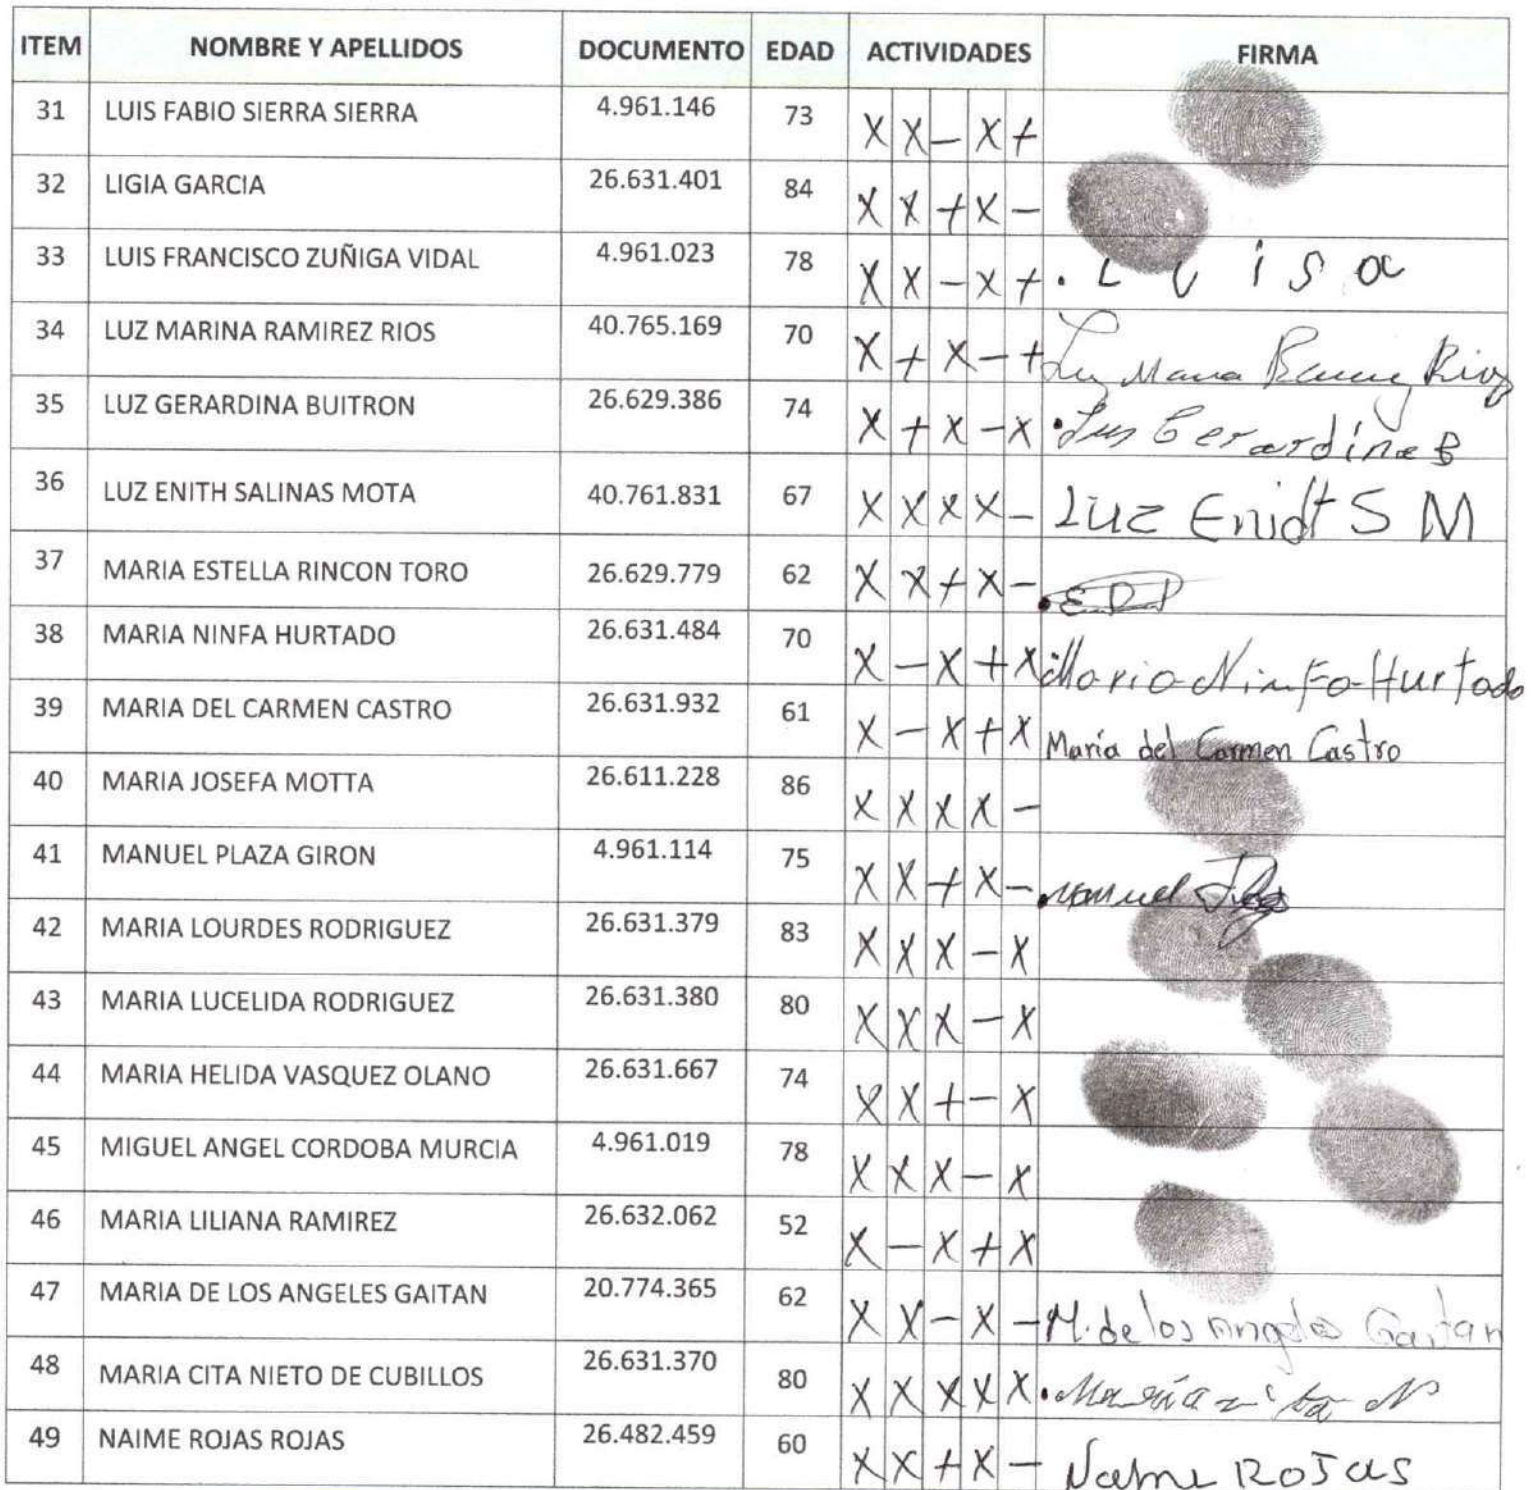 ITEM NOMBRE Y APELLIDOS DOCUMENTO EDAD ACTIVIDADES FIRMA
31 LUIS FABIO SIERRA SIERRA 4.961.146 73 X X - X +
32 LIGIA GARCIA 26.631.401 84 X X + X -
33 LUIS FRANCISCO ZUÑIGA VIDAL 4.961.023 78 X X - X + . L u i s a
34 LUZ MARINA RAMIREZ RIOS 40.765.169 70 X + X - + Luz Maria Rios
35 LUZ GERARDINA BUITRON 26.629.386 74 X + X - X . Luz Gerardina B
36 LUZ ENITH SALINAS MOTA 40.761.831 67 X X X X - Luz Enidt S M
37 MARIA ESTELLA RINCON TORO 26.629.779 62 X X + X -
38 MARIA NINFA HURTADO 26.631.484 70 X - X + X Maria Ninfa Hurtado
39 MARIA DEL CARMEN CASTRO 26.631.932 61 X - X + X María del Carmen Castro
40 MARIA JOSEFA MOTTA 26.611.228 86 X X X X -
41 MANUEL PLAZA GIRON 4.961.114 75 X X + X - . Manuel
42 MARIA LOURDES RODRIGUEZ 26.631.379 83 X X X - X
43 MARIA LUCELIDA RODRIGUEZ 26.631.380 80 X X X - X
44 MARIA HELIDA VASQUEZ OLANO 26.631.667 74 X X + - X
45 MIGUEL ANGEL CORDOBA MURCIA 4.961.019 78 X X X - X
46 MARIA LILIANA RAMIREZ 26.632.062 52 X - X + X
47 MARIA DE LOS ANGELES GAITAN 20.774.365 62 X X - X - M. de los Angeles Gaitan
48 MARIA CITA NIETO DE CUBILLOS 26.631.370 80 X X X X X . María zita N
49 NAIME ROJAS ROJAS 26.482.459 60 X X + X - Naime ROJAS